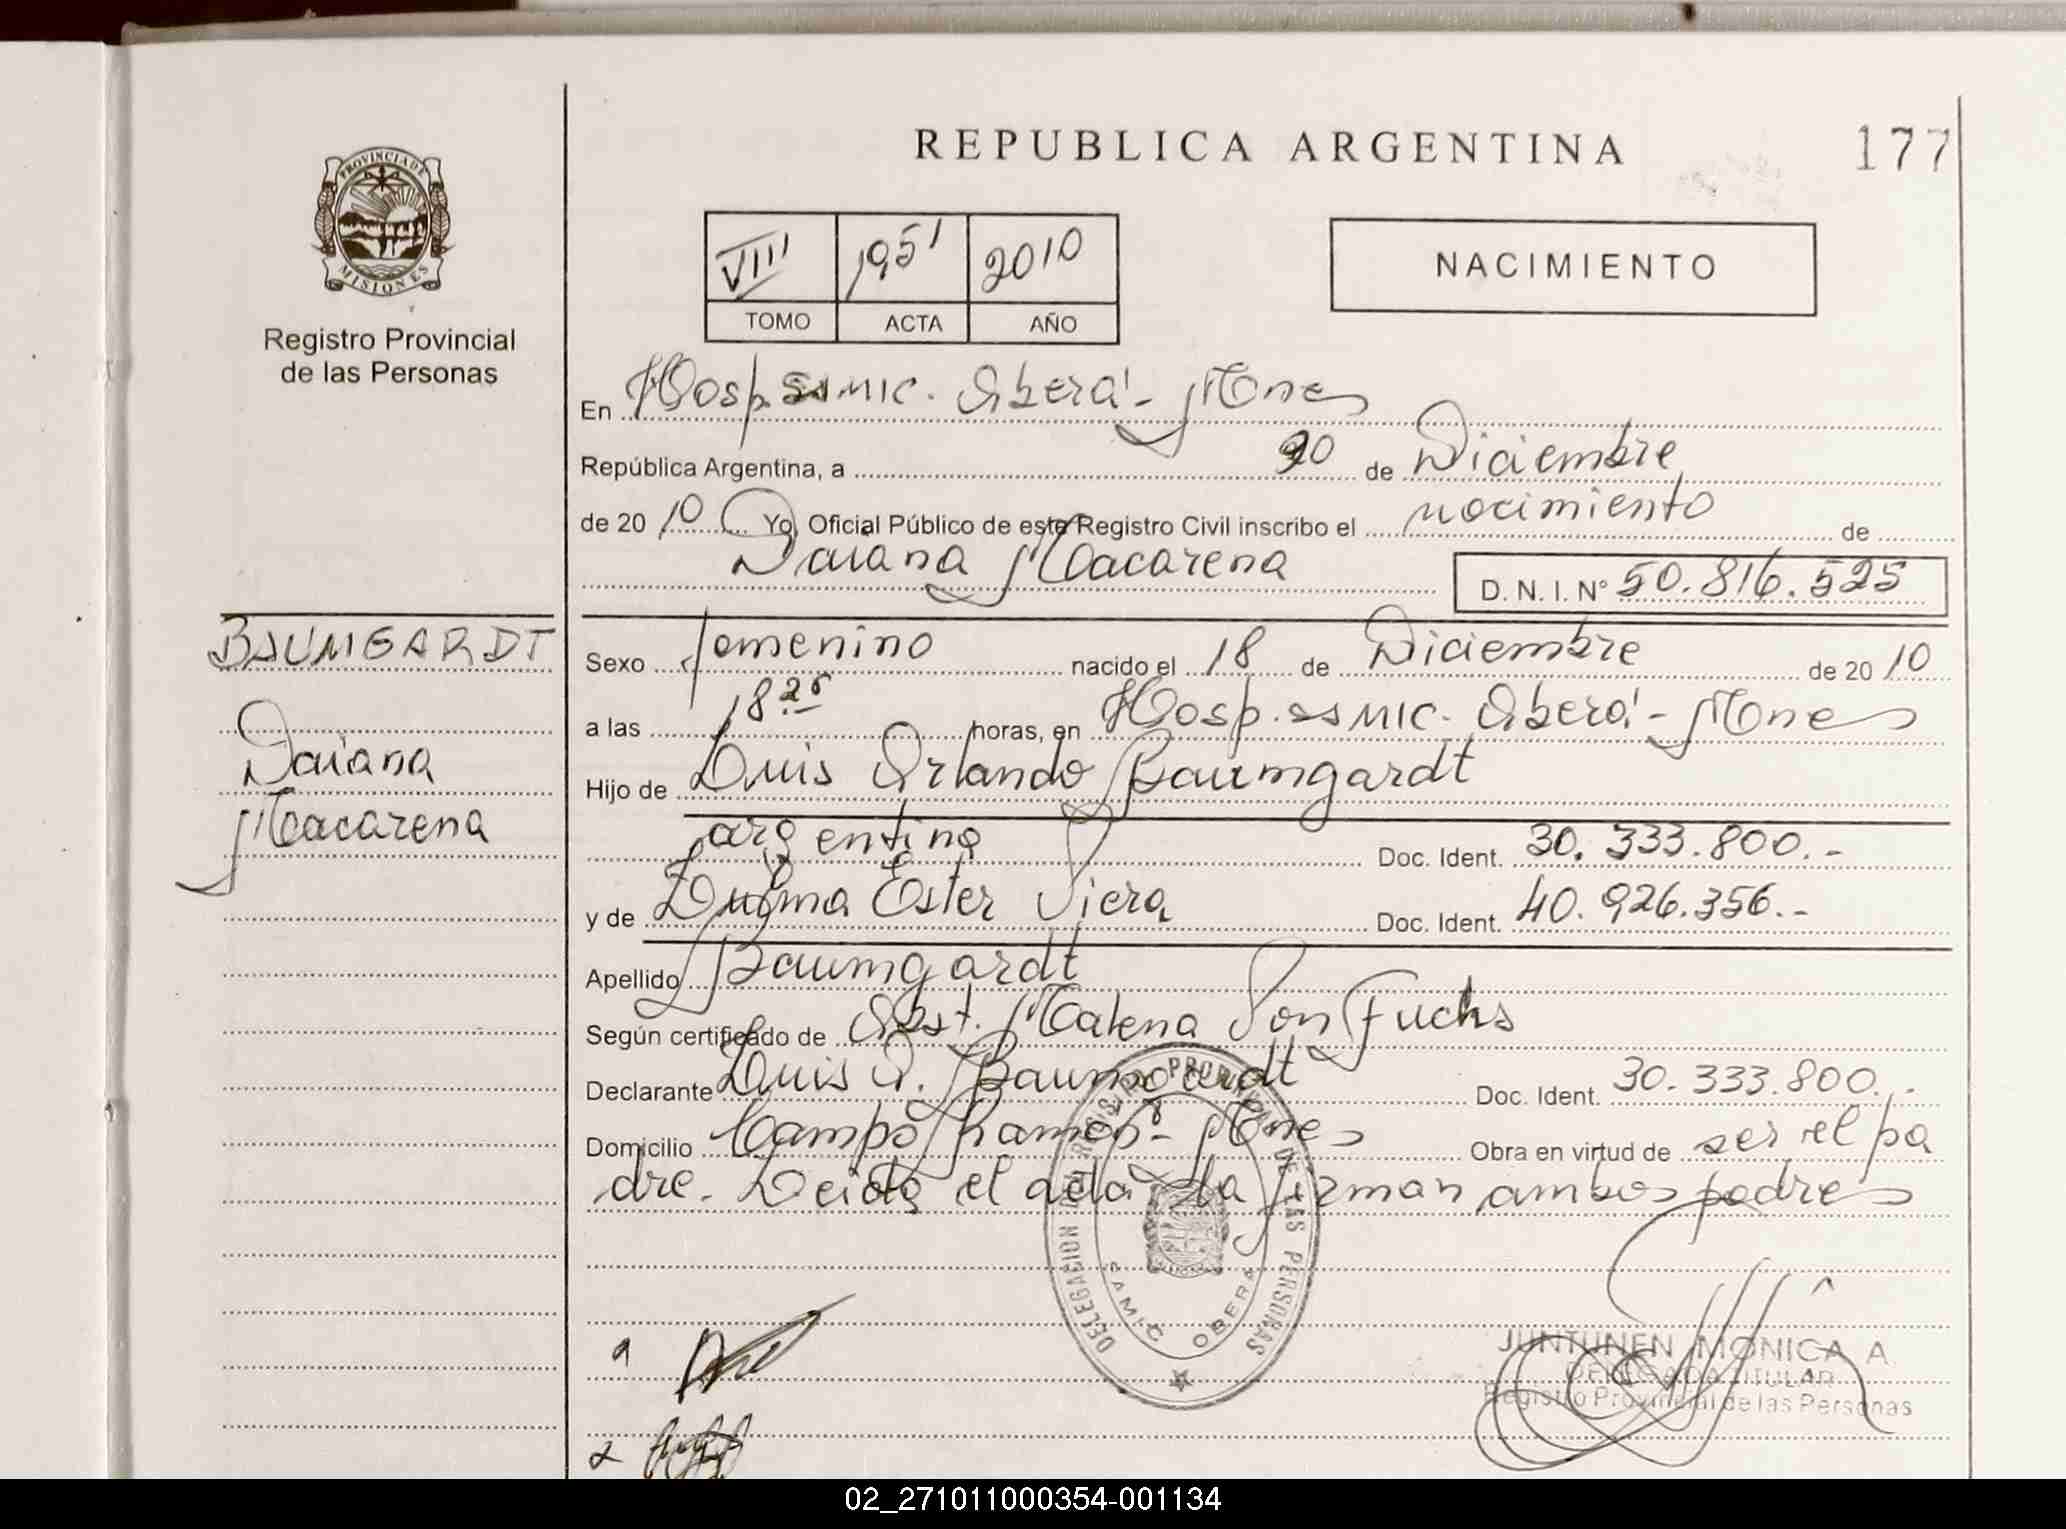 REPUBLICA ARGENTINA
177
PROVINCIA DE
MISIONES
Registro Provincial
de las Personas
VIII 1951 2010
TOMO ACTA AÑO
NACIMIENTO
En Hosp. SAMIC. Oberá - Mnes
República Argentina, a 20 de Diciembre
de 20 10 Yo, Oficial Público de este Registro Civil inscribo el nacimiento de
Daiana Macarena
D. N. I. Nº 50.816.525
BAUMGARDT
Daiana
Macarena
Sexo femenino nacido el 18 de Diciembre de 20 10
a las 18 25 horas, en Hosp. SAMIC. Oberá - Mnes
Hijo de Luis Orlando Baumgardt
argentino Doc. Ident. 30.333.800.-
y de Zulma Ester Viera Doc. Ident. 40.926.356.-
Apellido Baumgardt
Según certificado de Obst. Malena Von Fuchs
Declarante Luis O. Baumgardt Doc. Ident. 30.333.800.-
Domicilio Campo Ramón - Mnes Obra en virtud de ser el pa
dre. Leida el acta la firman ambos padres
DELEGACION DEL REGISTRO PROVINCIAL DE LAS PERSONAS
SAMIC OBERA
JUNTUNEN MONICA A
DELEGADA TITULAR
Registro Provincial de las Personas
02_271011000354-001134